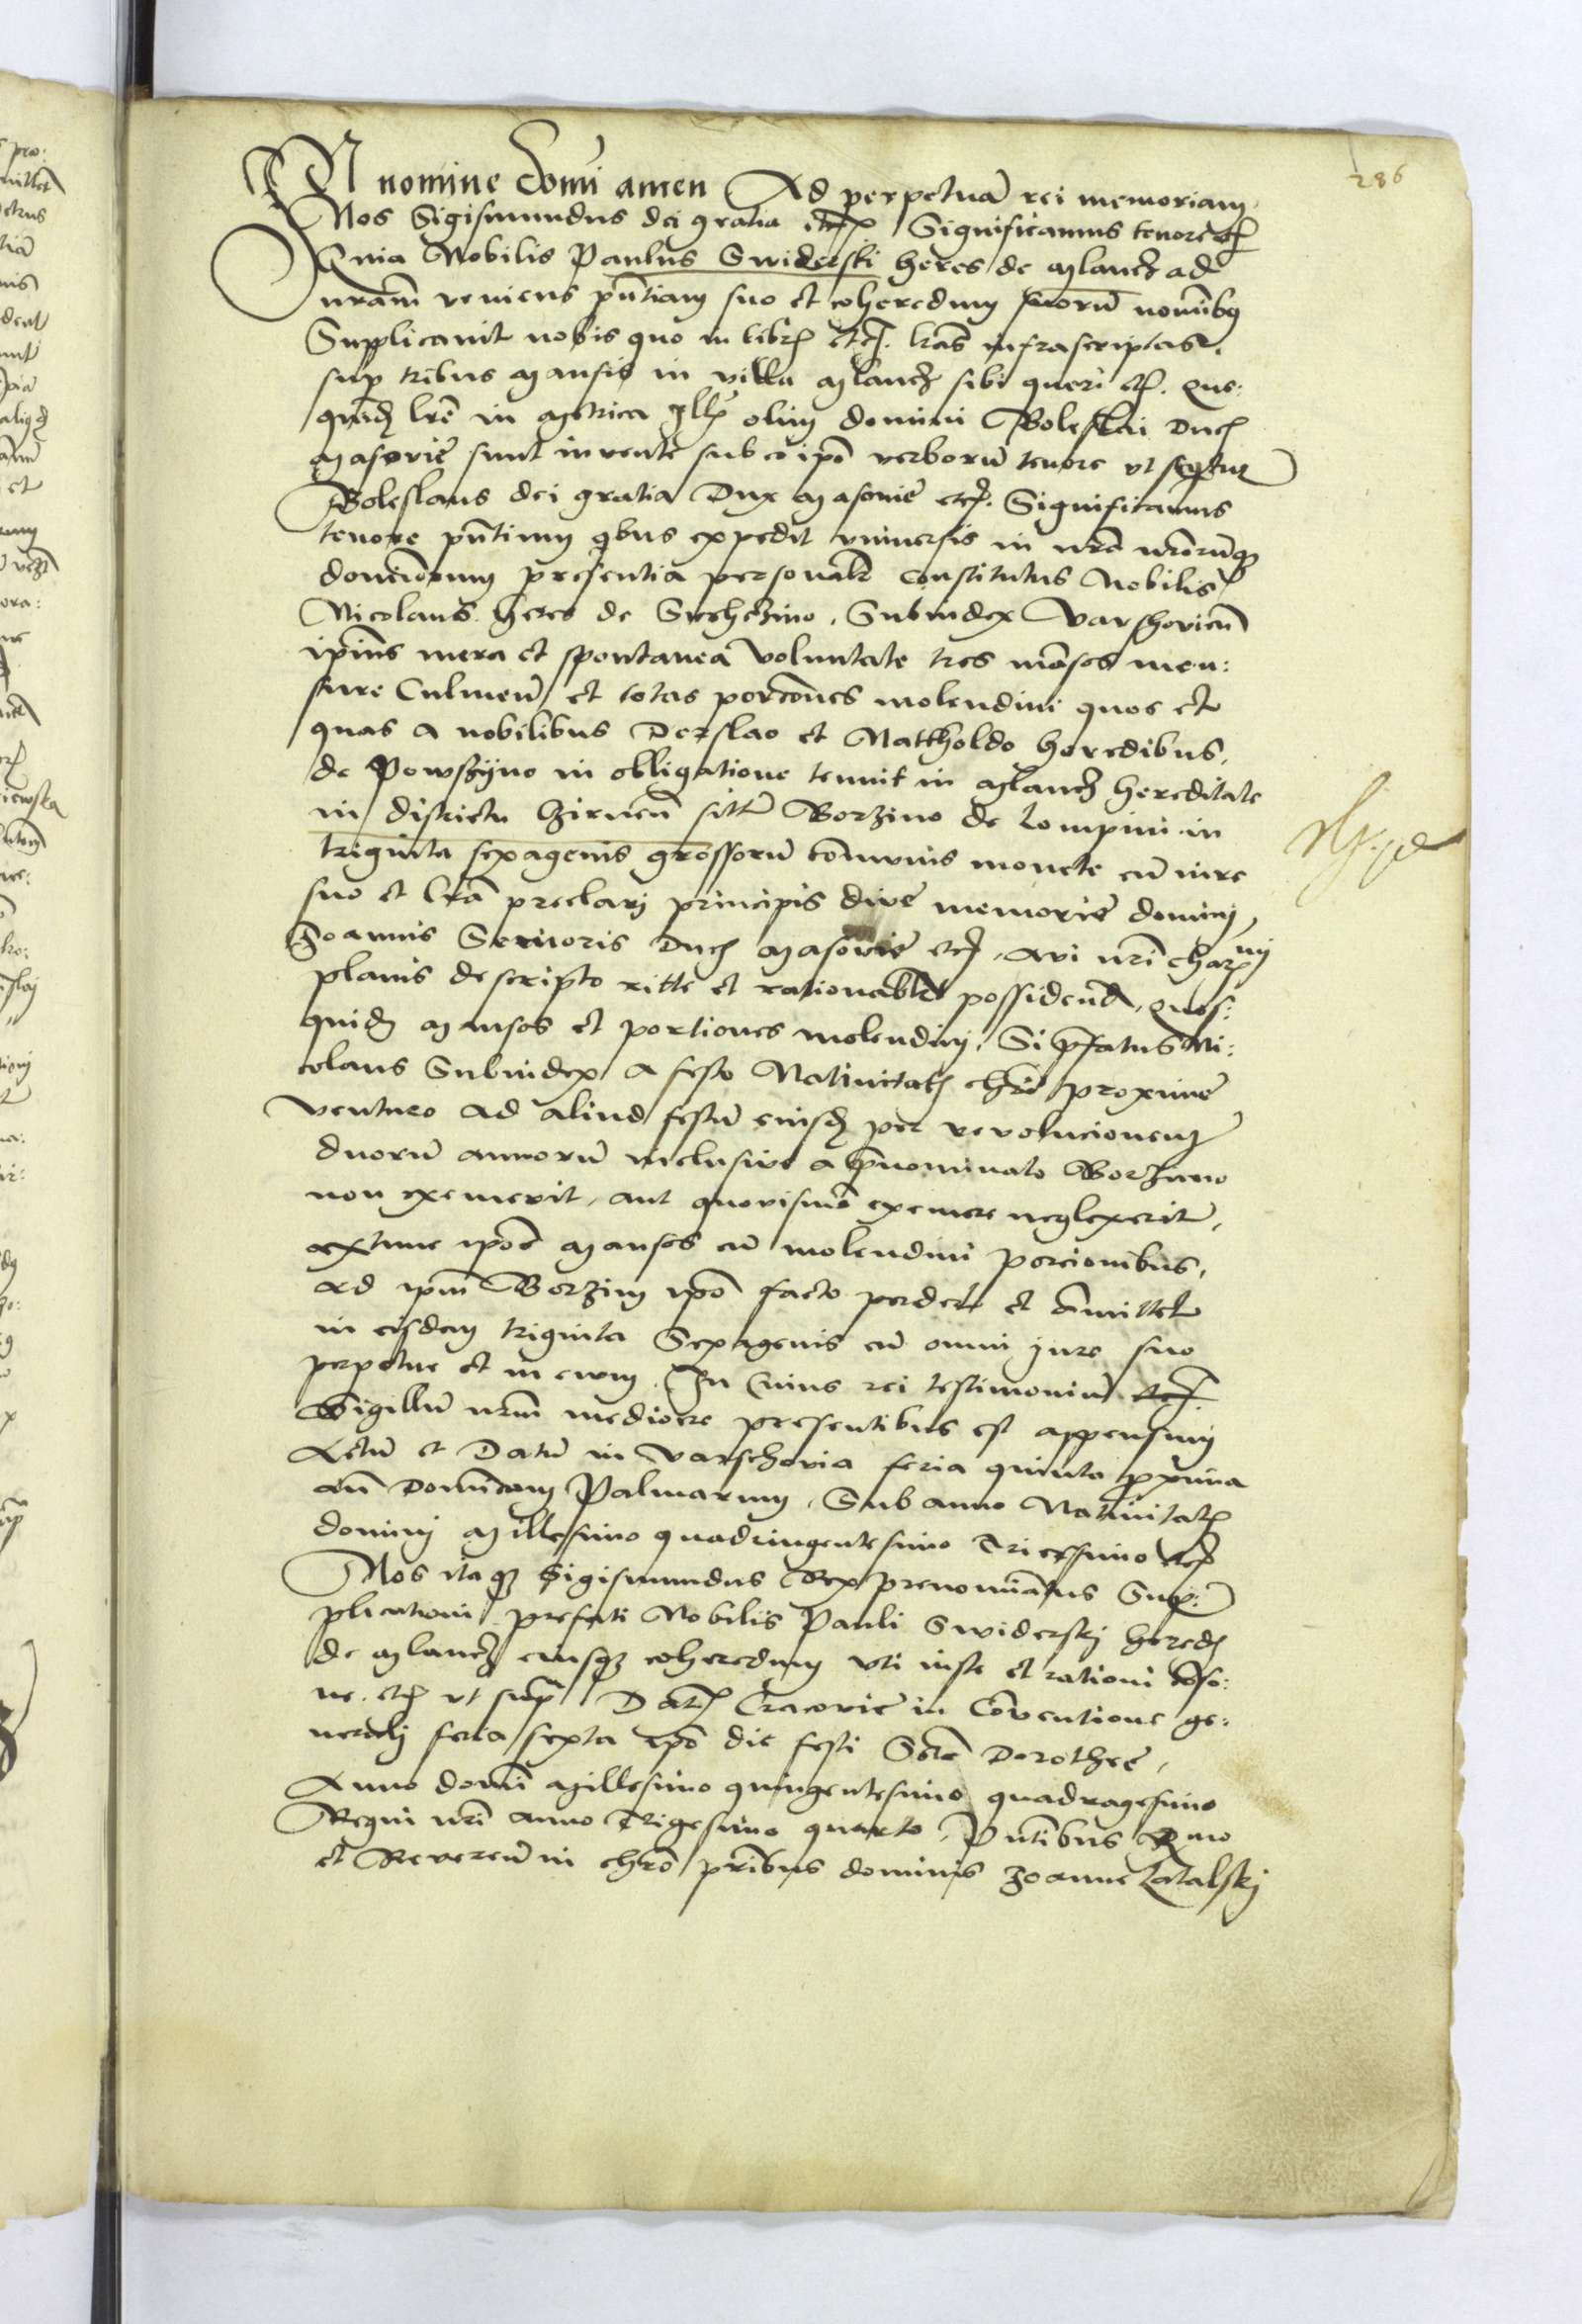 286
IN nomine domī amen Ad perpetuā rei memoriam.
Nos Sigismundus dei gratia etc. Significamus tenore etc.
Quia Nobilis Paulus Swiderski heres de Mlancz ad
nrām veniens pūtiam suo et coheredum suorū nomībus
Supplicavit nobis quo in libris etc. lrās infrascriptas.
sup tribus Mansis in villa Mlancz sibi queri etc. que:
quidē lrē in Metrica Illꝫ olim domini Boleslai Ducis
Masovie sunt invente sub eo ipō verborū tenore ut seqītur
Boleslaus dei gratia Dux Masovie etc. Significamus
tenore pūtium qbus expedit universis in nrā nrōrūqꝫ
presentia personalr constitutus Nobilis
Nicolaus heres de Subiudex Varschovien̄
ipīus mera et spontanea voluntate tres māsos men:
sure Culmen̄ et totas porcōnes molendini quos et
quas a nobilibus Derslao et Mattholdo heredibus
de Powszyno in obligatione tenuit in Mlancz hereditate
in districtu Czirnen̄ Borzino de Lompini in
triginta sexagenis grossorū cōmunis monete cū iure
suo et lrā preclarj principis dive memorie dominj
Joannis Senioris Ducis Masovie etc. avi nrī charꝫmj
planis descripto ritte et rationabilr possidend. quos:
quidē Mansos et portiones molendinj. Si prefatus Ni:
colaus Subiudex a festo Nativitatis chrī proxime
venturo ad aliud festū eiusdē per revolucionem
duorū annorū inclusive a prenominato Borzino
non exemerit, aut quovismō exemere neglexerit,
extunc ipōs Mansos cū molendini porcionibus,
ad ipm Borzim ipō facto perdet et amittet
in eisdem triginta Sexagenis cū omni jure suo
perpetue et in evum. In Cuius rei testimoniū etc.
Sigillū nrm mediocre presentibus est appensum
Actū et Datū in Varschovia feria quinta proxima
an̄ Domīcam Palmarum. Sub anno Nativitatis
dominj Millesimo quadringentesimo Tricessimo etc.
Nos itaqꝫ Sigismundus Rex prenomiātus Sup:
plicationi prefati Nobilis Pauli Swiderskj heredis
de Mlancz eiusqꝫ coheredum uti iuste et rationi cōso:
ne. etc. ut supra Datꝫ Cracovie in Conventione ge:
neralj feria sexta ipō die festi Scte Dorothee,
Anno domī Millesimo quingentesimo quadragesimo
Regni nrī anno Trigesimo quarto. Pūtibus Rmo
et Reveren̄ in chrō prībus dominis Joanne Latalskj